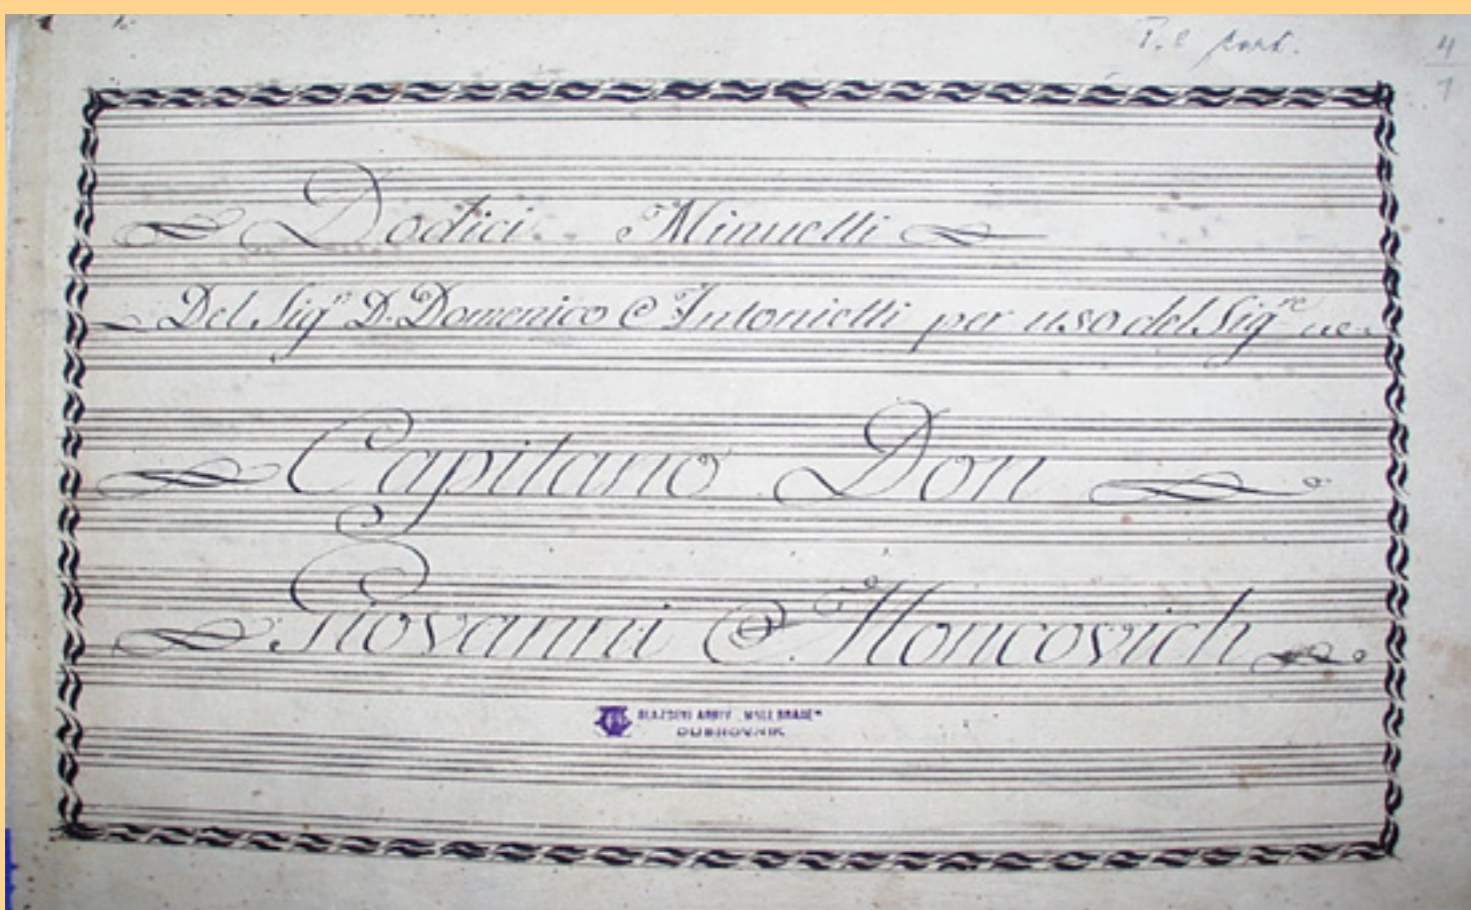 4
1
Dodici Minuetti
Del Sig.r D. Domenico Antonietti per uso del Sig.re
Capitano Don
Giovanni Moncovich
GLAZBENI ARHIV „MALE BRAĆE“
DUBROVNIK